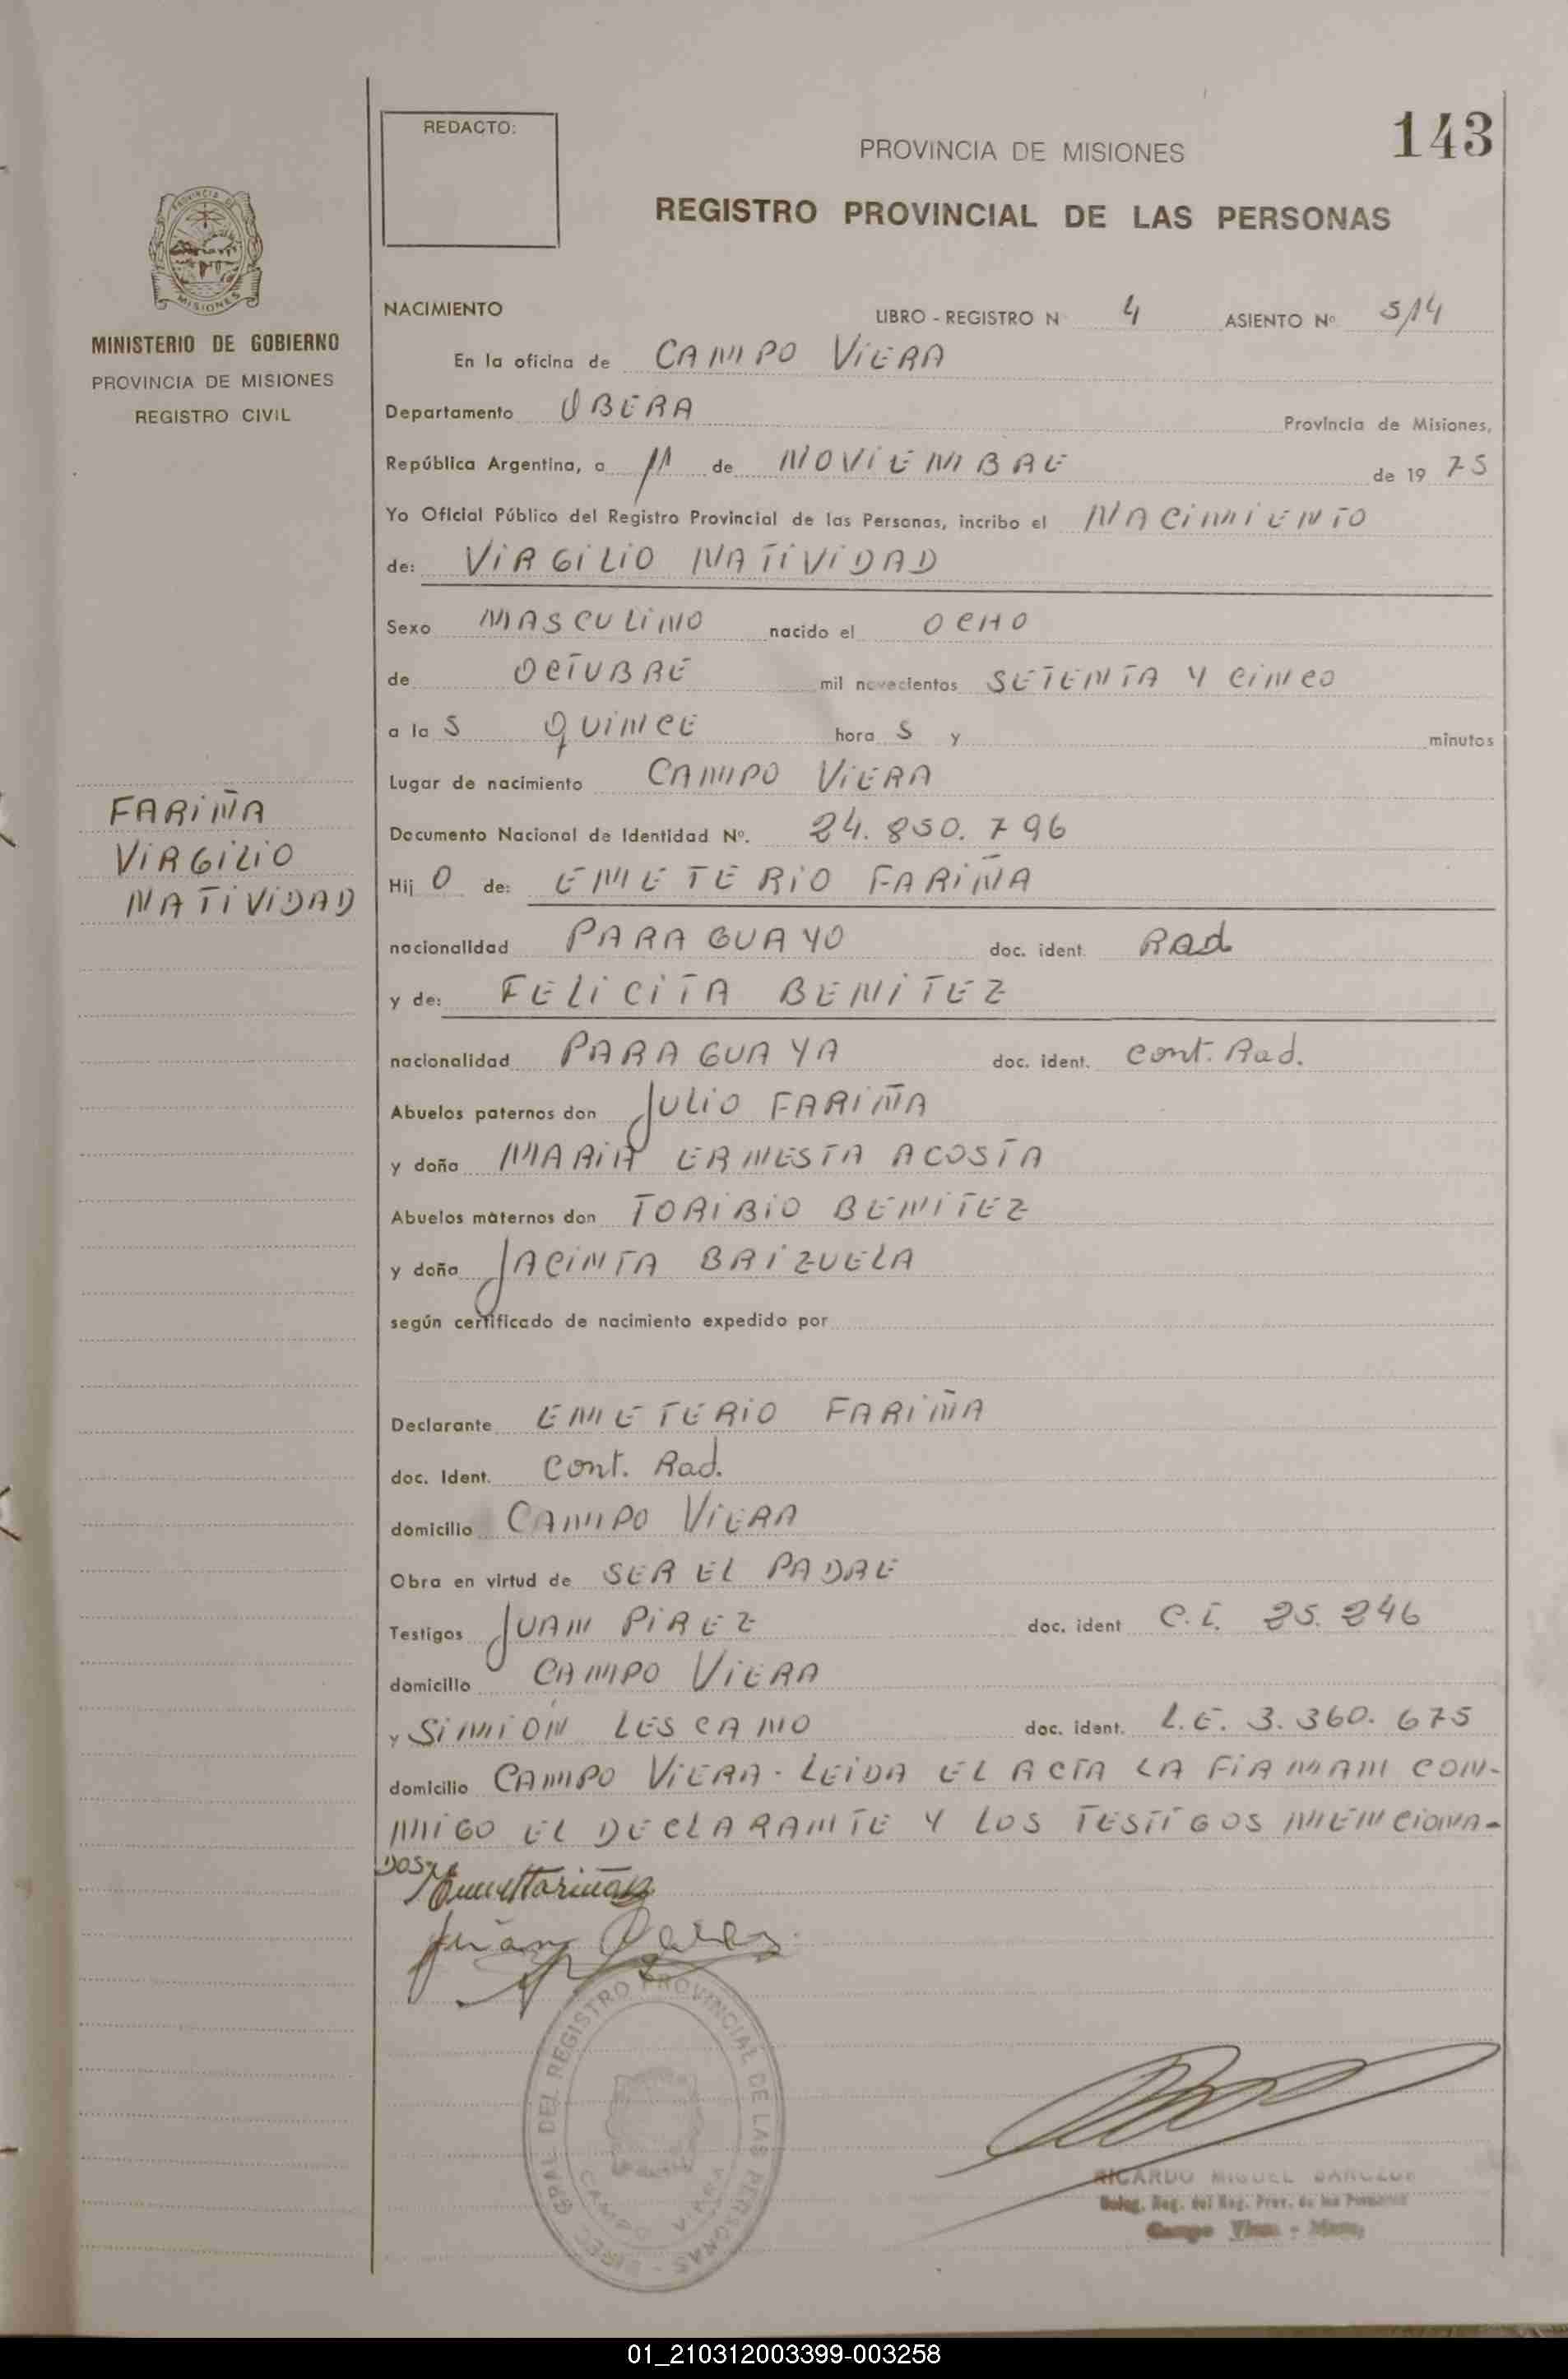 REDACTO:
PROVINCIA DE MISIONES
143
REGISTRO PROVINCIAL DE LAS PERSONAS
MISIONES
MINISTERIO DE GOBIERNO
PROVINCIA DE MISIONES
REGISTRO CIVIL
NACIMIENTO LIBRO - REGISTRO N 4 ASIENTO Nº 514
En la oficina de CAMPO VIERA
Departamento OBERA Provincia de Misiones,
República Argentina, a 11 de NOVIEMBRE de 1975
Yo Oficial Público del Registro Provincial de las Personas, incribo el NACIMIENTO
de: VIRGILIO NATIVIDAD
Sexo MASCULINO nacido el OCHO
de OCTUBRE mil novecientos SETENTA Y CINCO
a las QUINCE horas y minutos
Lugar de nacimiento CAMPO VIERA
FARIÑA
VIRGILIO
NATIVIDAD
Documento Nacional de Identidad Nº. 24.850.796
Hijo de: EMETERIO FARIÑA
nacionalidad PARAGUAYO doc. ident. Rad
y de: FELICITA BENITEZ
nacionalidad PARAGUAYA doc. ident. Cont. Rad.
Abuelos paternos don JULIO FARIÑA
y doña MARIA ERNESTA ACOSTA
Abuelos maternos don TORIBIO BENITEZ
y doña JACINTA BRIZUELA
según certificado de nacimiento expedido por
Declarante EMETERIO FARIÑA
doc. Ident. Cont. Rad.
domicilio CAMPO VIERA
Obra en virtud de SER EL PADRE
Testigos JUAN PIREZ doc. ident C.I. 25.246
domicilio CAMPO VIERA
y SIMIÓN LESCANO doc. ident. L.E. 3.360.675
domicilio CAMPO VIERA - LEIDA EL ACTA LA FIRMAN CON-
MIGO EL DECLARANTE Y LOS TESTIGOS MENCIONA-
DOS
DIREC GRAL DEL REGISTRO PROVINCIAL DE LAS PERSONAS
CAMPO VIERA
RICARDO MIGUEL
Campo Viera - Mnes.
01_210312003399-003258